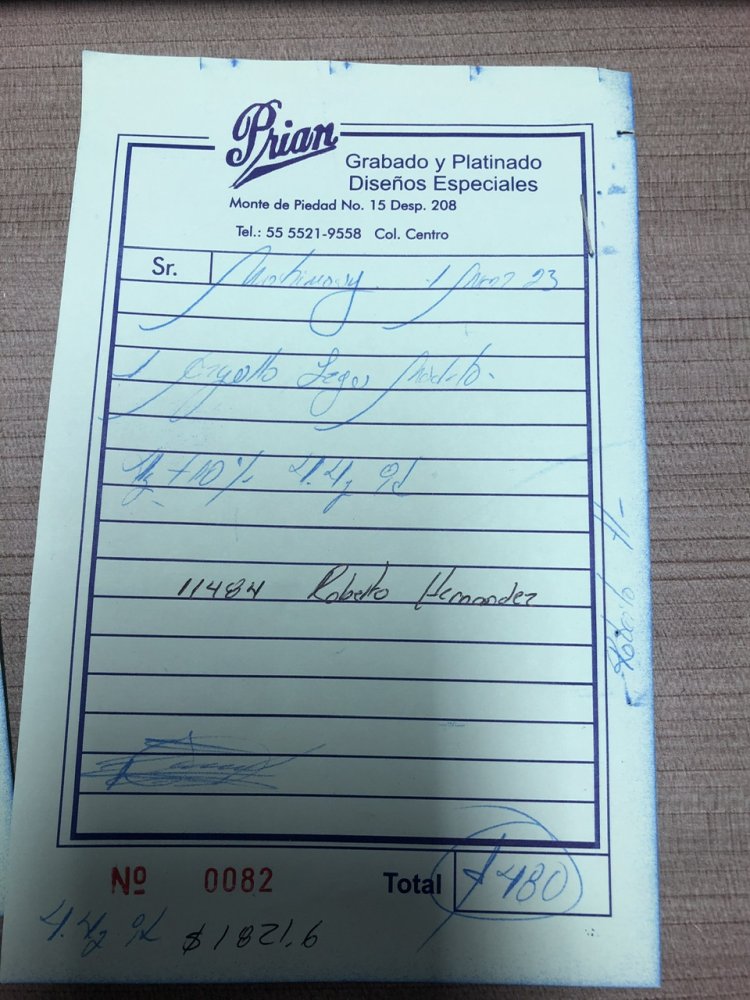 Prian
Grabado y Platinado
Diseños Especiales
Monte de Piedad No. 15 Desp. 208
Tel.: 55 5521-9558 Col. Centro
Sr. 23
1
+10% 4.4g
11484 Roberto Hernandez
Roberto H-
Nº 0082 Total $480
4.4g $1821.6